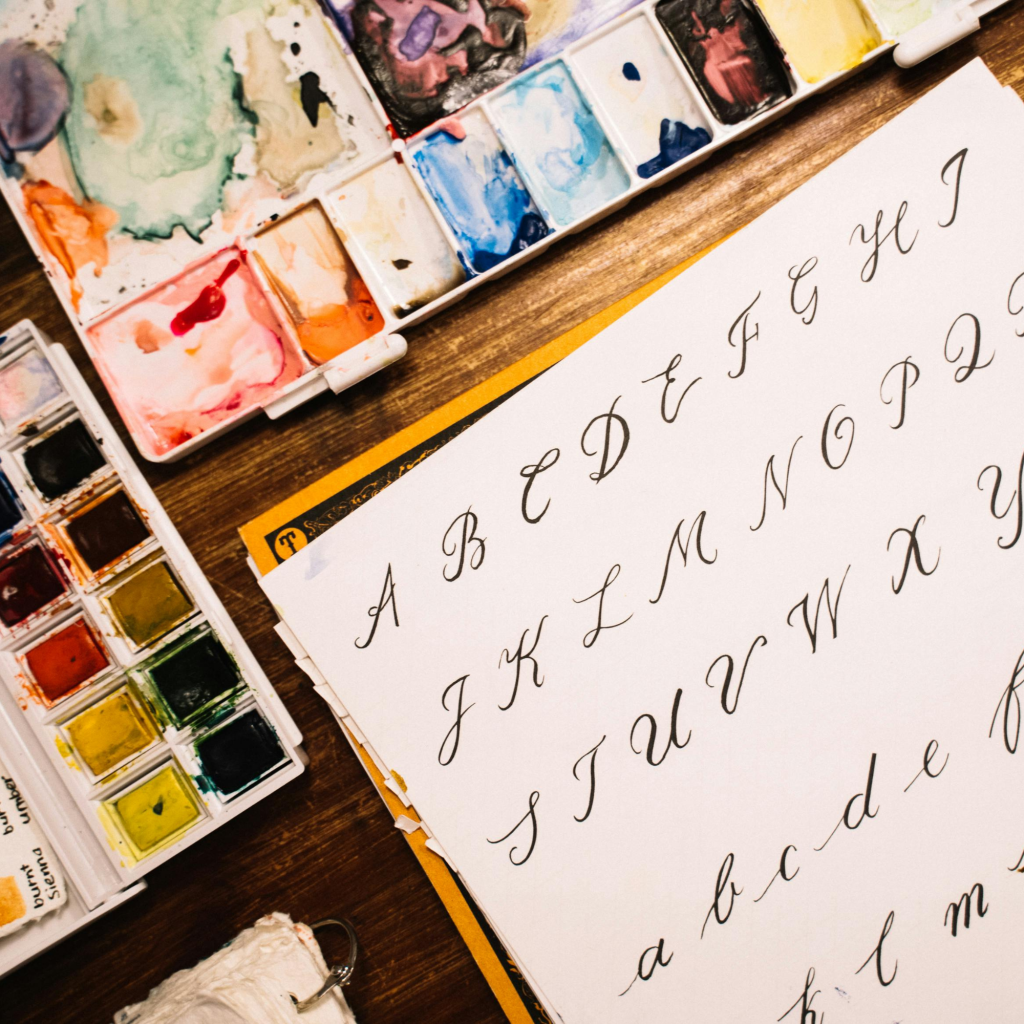 A B C D E F G H I
J K L M N O P Q
S T U V W X Y
a b c d e f
k l m
T
umber
burnt
Sienna